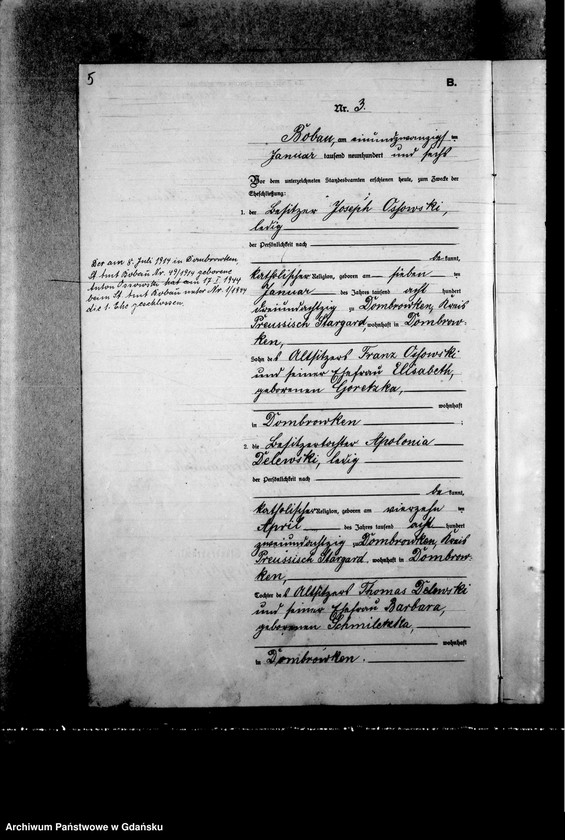 5
B.
Nr. 3.
Bobau, am einundzwanzigsten
Januar tausend neunhundert und sechs
Vor dem unterzeichneten Standesbeamten erschienen heute, zum Zwecke der
Eheschließung:
1. der Besitzer Joseph Ossowski,
ledig
der Persönlichkeit nach
be kannt,
katholischer Religion, geboren am sieben ten
Januar des Jahres tausend acht hundert
dreiundachtzig zu Dombrowken, Kreis
Preussisch Stargard wohnhaft in Dombrow-
ken,
Sohn des Altsitzers Franz Ossowski
und seiner Ehefrau Elisabeth,
geborenen Goretzka,
wohnhaft
in Dombrowken ;
2. die Besitzertochter Apolonia
Delewski, ledig
der Persönlichkeit nach
be kannt,
katholischer Religion, geboren am vierzehn ten
April des Jahres tausend acht hundert
zweiundachtzig zu Dombrowken, Kreis
Preussisch Stargard, wohnhaft in Dombrow-
ken,
Tochter des Altsitzers Thomas Delewski
und seiner Ehefrau Barbara,
geborenen Schmiletzka,
wohnhaft
in Dombrowken.
Der am 8. Juli 1914 in Dombrowken,
St Amt Bobau Nr. 49/1914 geborene
Anton Ossowski hat am 17. I. 1944
beim St Amt Bobau unter Nr. 1/1944
die 1. Ehe geschlossen.
Archiwum Państwowe w Gdańsku